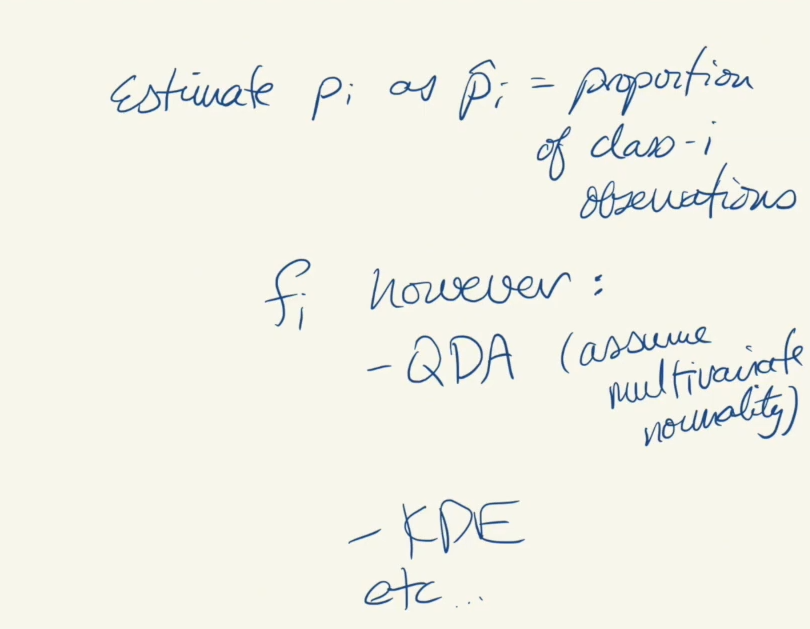 Estimate pᵢ as p̂ᵢ = proportion
of class-i
observations
fᵢ however:
- QDA (assume
multivariate
normality)
- KDE
etc...